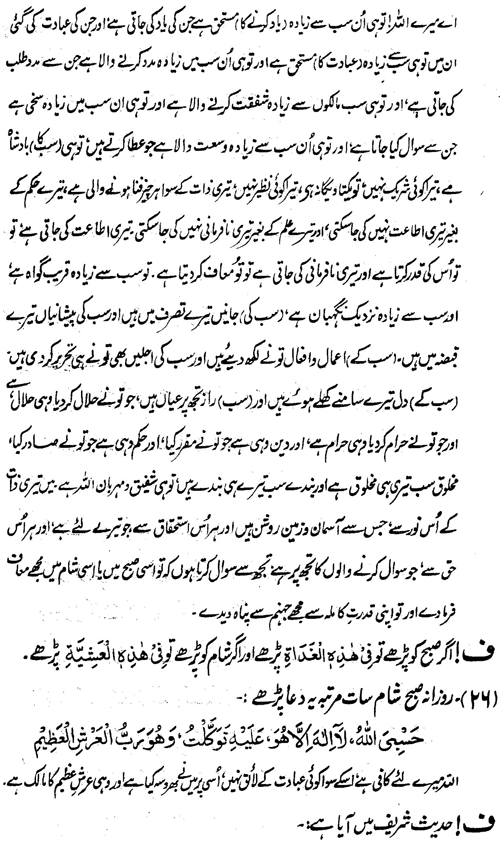 اے میرے اللہ! تو ہی اُن سب سے زیادہ (یاد کرنے کا) مستحق ہے جن کی یاد کی جاتی ہے اور جن کی عبادت کی گئی
ان میں تو ہی سب سے زیادہ (عبادت کا) مستحق ہے اور تو ہی اُن سب میں زیادہ مدد کرنے والا ہے جن سے مدد طلب
کی جاتی ہے‘ اور تو ہی سب مالکوں سے زیادہ شفقت کرنے والا ہے اور تو ہی ان سب میں زیادہ سخی ہے
جن سے سوال کیا جاتا ہے‘ اور تو ہی اُن سب سے زیادہ وسعت والا ہے جو عطا کرتے ہیں‘ تو ہی (سب کا) بادشاہ
ہے، تیرا کوئی شریک نہیں‘ تو یکتا و یگانہ ہی، تیرا کوئی نظیر نہیں‘ تیری ذات کے سوا ہر چیز فنا ہونے والی ہے، تیرے حکم کے
بغیر تیری اطاعت نہیں کی جا سکتی‘ اور تیرے علم کے بغیر تیری نافرمانی نہیں کی جا سکتی۔ تیری اطاعت کی جاتی ہے‘ تو
تو اُس کی قدر کرتا ہے اور تیری نافرمانی کی جاتی ہے تو تو معاف کر دیتا ہے۔ تو سب سے زیادہ قریب گواہ ہے‘
اور سب سے زیادہ نزدیک نگہبان ہے‘ (سب کی) جانیں تیرے تصرف میں ہیں اور سب کی پیشانیاں تیرے
قبضہ میں ہیں۔ (سب کے) اعمال و افعال تو نے لکھ دیئے ہیں اور سب کی اجلیں بھی تو نے ہی تحریر کر دی ہیں‘
(سب کے) دل تیرے سامنے کھلے ہوئے ہیں اور (سب) راز تجھ پر عیاں ہیں‘ جو تو نے حلال کر دیا وہی حلال ہے
اور جو تو نے حرام کر دیا وہی حرام ہے‘ اور دین وہی ہے جو تو نے مقرر کیا‘ اور حکم وہی ہے جو تو نے صادر کیا‘
مخلوق سب تیری ہی مخلوق ہے اور بندے سب تیرے ہی بندے ہیں‘ تو ہی شفیق و مہربان اللہ ہے، میں تیری ذات
کے اُس نور سے‘ جس سے آسمان و زمین روشن ہیں اور ہر اُس استحقاق سے جو تیرے لئے ہے‘ اور ہر اُس
حق سے‘ جو سوال کرنے والوں کا تجھ پر ہے‘ تجھ سے سوال کرتا ہوں کہ تو اسی صبح میں یا اسی شام میں مجھے معاف
فرما دے اور تو اپنی قدرتِ کاملہ سے مجھے جہنم سے پناہ دیدے۔
ف! اگر صبح کو پڑھے تو فِیْ ھٰذِہِ الْغَدَاۃِ پڑھے اور اگر شام کو پڑھے تو فِیْ ھٰذِہِ الْعَشِیَّۃِ پڑھے۔
(۲۶)۔ روزانہ صبح شام سات مرتبہ یہ دعا پڑھے :۔
حَسْبِیَ اللہُ، لَآ اِلٰہَ اِلَّا ھُوَ، عَلَیْہِ تَوَکَّلْتُ، وَھُوَ رَبُّ الْعَرْشِ الْعَظِیْمِ
اللہ میرے لئے کافی ہے‘ اسکے سوا کوئی عبادت کے لائق نہیں‘ اُسی پر میں نے بھروسہ کیا ہے اور وہی عرشِ عظیم کا مالک ہے۔
ف! حدیث شریف میں آیا ہے :۔